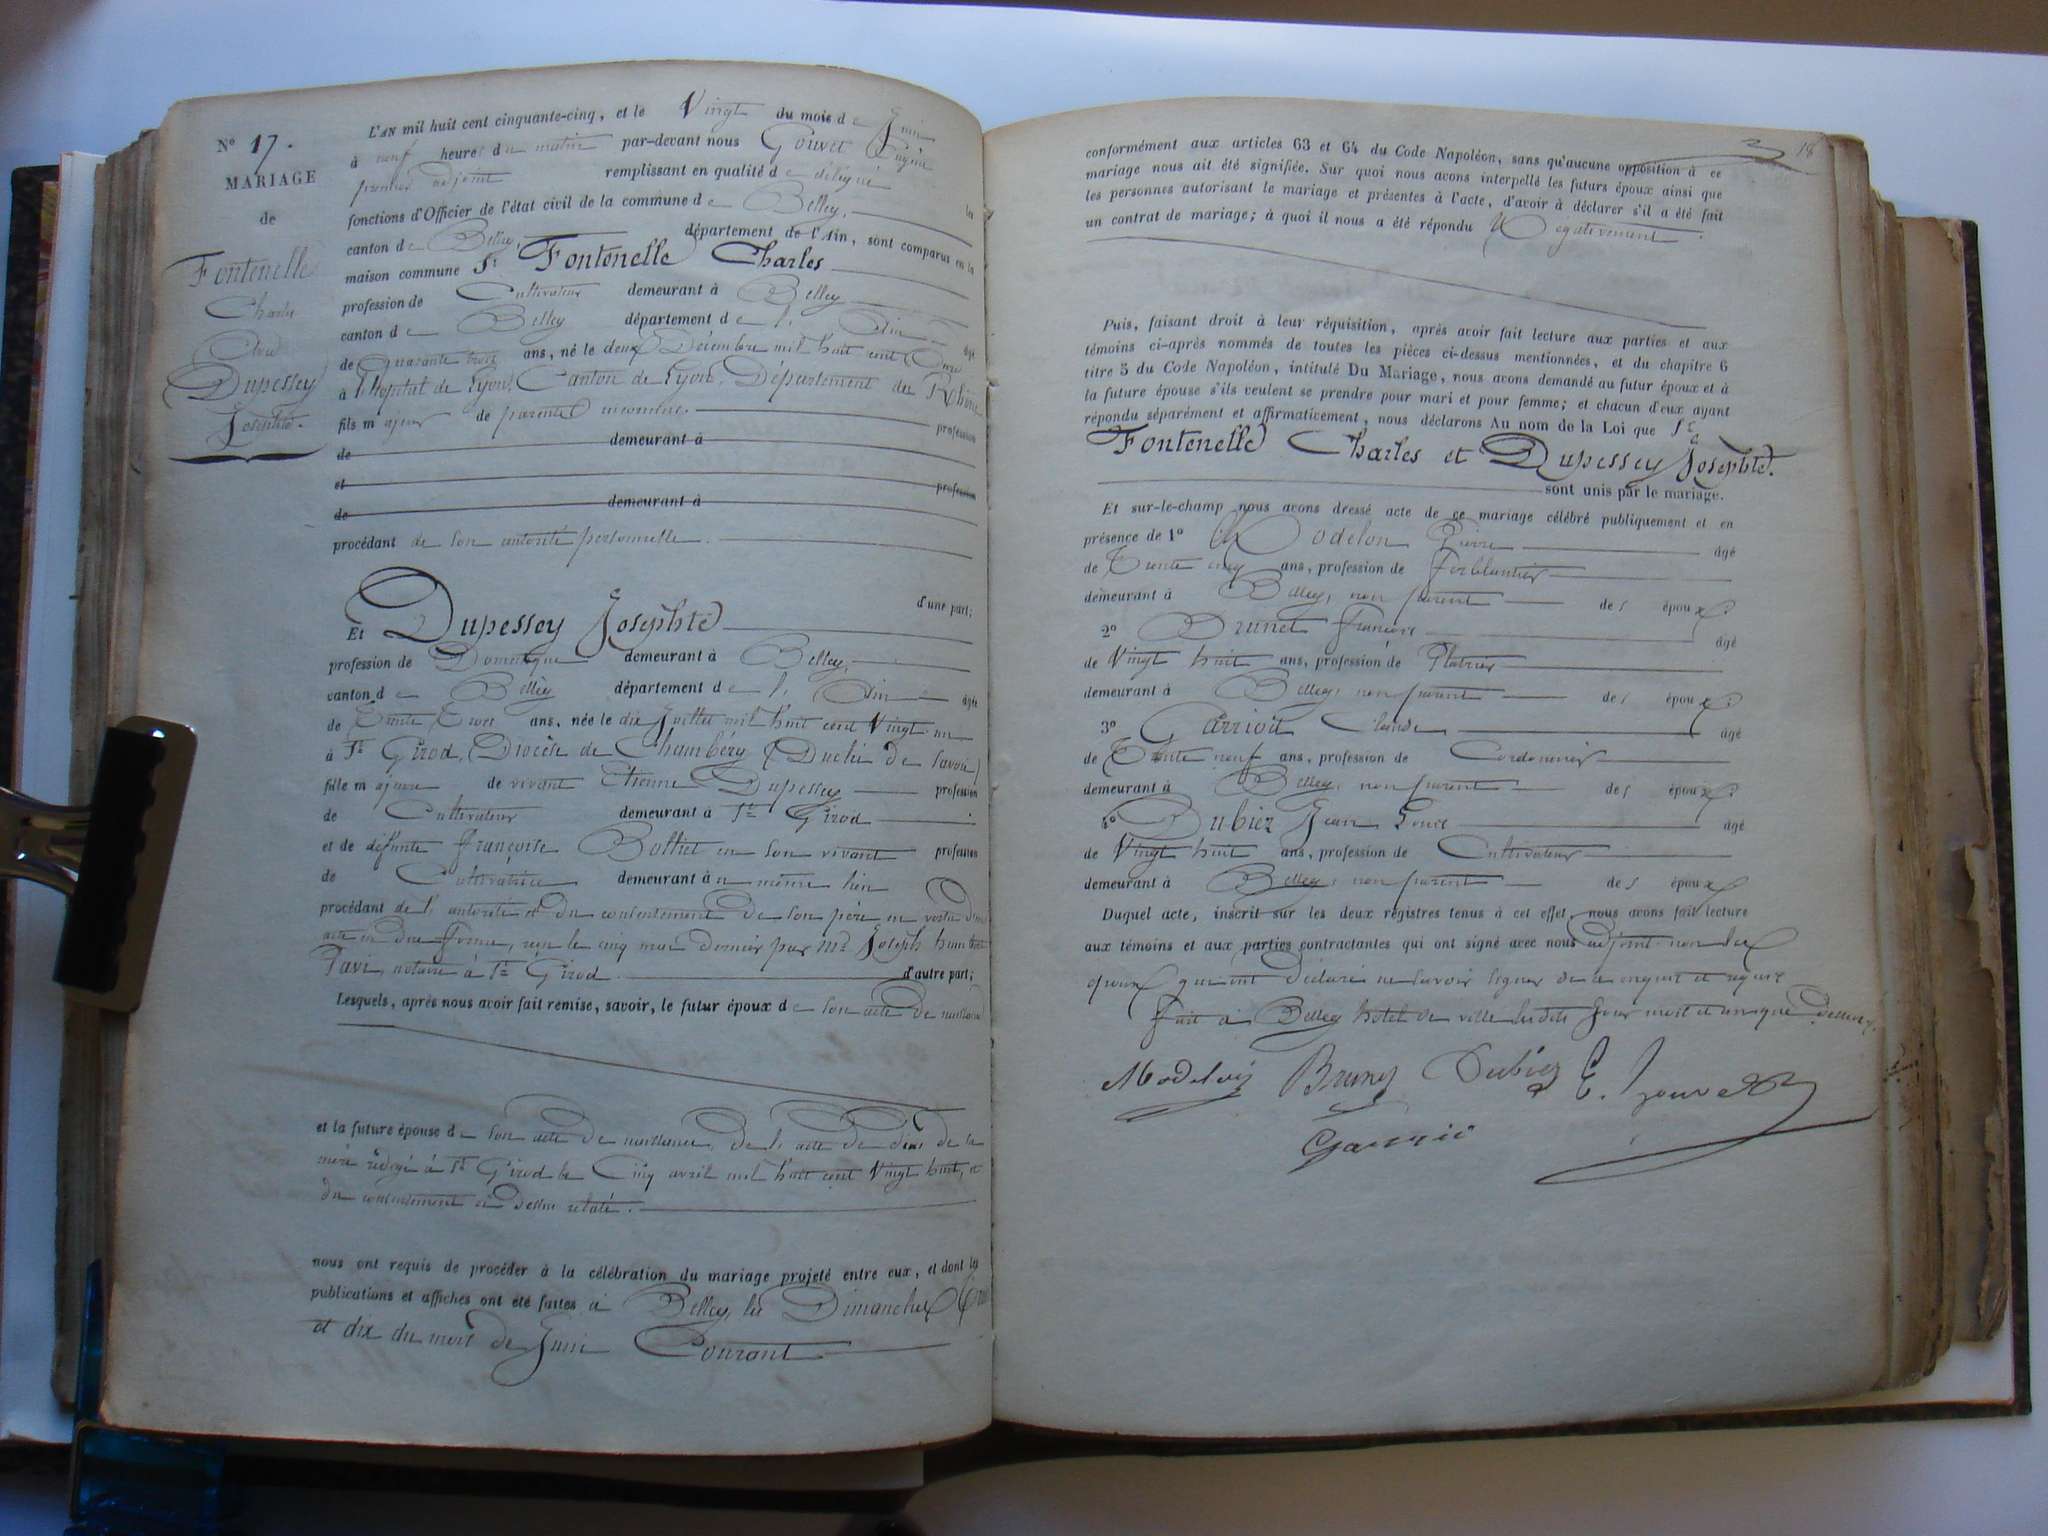 N° 17.
MARIAGE
de
Fontenelle
Charles
Avec
Dupessey
Josephte.
L'AN mil huit cent cinquante-cinq, et le Vingt du mois de Juin
à neuf heures du matin par-devant nous Gouvet Eugène
premier adjoint remplissant en qualité de délégué les
fonctions d'Officier de l'état civil de la commune de Belley,
canton de Belley, département de l'Ain, sont comparus en la
maison commune Sr Fontenelle Charles
profession de Cultivateur demeurant à Belley
canton de Belley département de l' Ain âgé
de Quarante trois ans, né le deux Décembre mil huit cent Onze
à l'Hopital de Lyon, Canton de Lyon, Département du Rhône
fils majeur de parents inconnus. profession
de demeurant à
et profession
de demeurant à
procédant de son autorité personnelle.
d'une part;
Et Dupessey Josephte
profession de Domestique demeurant à Belley,
canton de Belley département de l' Ain âgée
de Trente trois ans, née le dix Juillet mil huit cent Vingt un
à St Girod, Diocèse de Chambéry (Duché de Savoie)
fille majeure de vivant Etienne Dupessey profession
de Cultivateur demeurant à St Girod
et de défunte Françoise Bolliet en son vivant profession
de Cultivatrice demeurant au même lieu
procédant de l' autorité et du consentement de son père en vertu d'un
acte en due forme, reçu le cinq mai dernier par Me Joseph humbert
Pavi, notaire à St Girod. d'autre part;
Lesquels, après nous avoir fait remise, savoir, le futur époux de son acte de naissance
et la future épouse de son acte de naissance, de l' acte de décès de sa
mère rédigé à St Girod le Cinq avril mil huit cent Vingt huit, et
du consentement ci dessus relaté.
nous ont requis de procéder à la célébration du mariage projeté entre eux, et dont les
publications et affiches ont été faites à Belley, les Dimanches trois
et dix du mois de Juin Courant
18
conformément aux articles 63 et 64 du Code Napoléon, sans qu'aucune opposition à ce
mariage nous ait été signifiée. Sur quoi nous avons interpellé les futurs époux ainsi que
les personnes autorisant le mariage et présentes à l'acte, d'avoir à déclarer s'il a été fait
un contrat de mariage; à quoi il nous a été répondu Négativement.
Puis, faisant droit à leur réquisition, après avoir fait lecture aux parties et aux
témoins ci-après nommés de toutes les pièces ci-dessus mentionnées, et du chapitre 6
titre 5 du Code Napoléon, intitulé Du Mariage, nous avons demandé au futur époux et à
la future épouse s'ils veulent se prendre pour mari et pour femme; et chacun d'eux ayant
répondu séparément et affirmativement, nous déclarons Au nom de la Loi que Sr
Fontenelle Charles et Dupessey Josephte.
sont unis par le mariage.
Et sur-le-champ nous avons dressé acte de ce mariage célébré publiquement et en
présence de 1° Modelon Pierre âgé
de Trente cinq ans, profession de Ferblantier
demeurant à Belley, non parent des époux.
2° Brunet François âgé
de Vingt huit ans, profession de Platrier
demeurant à Belley, non parent des époux.
3° Garriod Claude âgé
de Trente neuf ans, profession de Cordonnier
demeurant à Belley, non parent des époux.
4° Dubiez Jean Louis âgé
de Vingt huit ans, profession de Cultivateur
demeurant à Belley, non parent des époux
Duquel acte, inscrit sur les deux registres tenus à cet effet, nous avons fait lecture
aux témoins et aux parties contractantes qui ont signé avec nous adjoint non les
époux qui ont déclaré ne savoir signer de ce enquis et requis
Fait à Belley hotel de ville lesdits jour mois et an que dessus.
Modelon Brunet Dubiez E. Gouvet